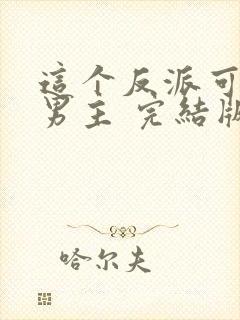 這个反派可
男主 完結版
哈尔夫